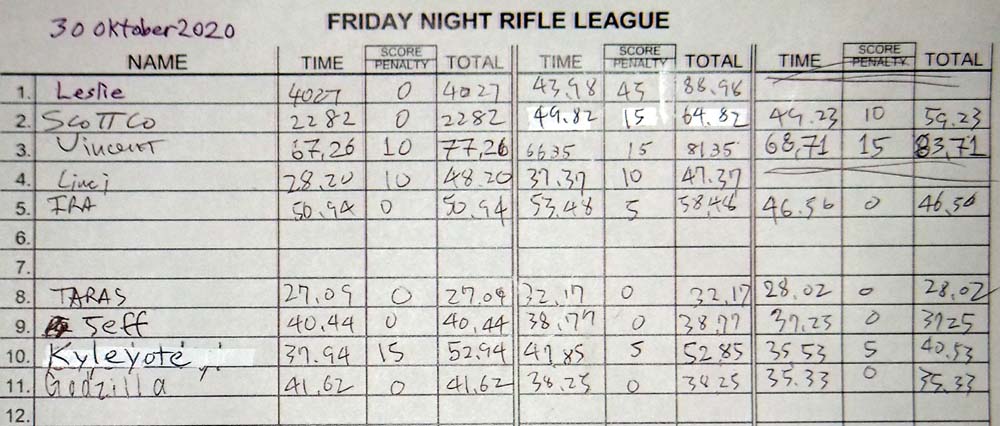 30 Oktober 2020 FRIDAY NIGHT RIFLE LEAGUE
NAME TIME SCORE PENALTY TOTAL TIME SCORE PENALTY TOTAL TIME SCORE PENALTY TOTAL
1. Leslie 4027 0 4027 43,98 45 88,98
2. SCOTTCO 2282 0 2282 49.82 15 64.82 49.23 10 59.23
3. Vincent 67,26 10 77,26 6635 15 8135 68,71 15 83,71
4. 28.20 10 48.20 37.37 10 47.37
5. IRA 50.94 0 50.94 53.48 5 58.48 46.56 0 46.56
6.
7.
8. TARAS 27.09 0 27.09 32.17 0 32,17 28.02 0 28.02
9. Jeff 40.44 0 40.44 38.77 0 38.77 37.25 0 3725
10. Kyleyote 37.94 15 52.94 47.85 5 52.85 35 53 5 40.53
11. Godzilla 41.62 0 41.62 38.25 0 38 25 35.33 0 35.33
12.